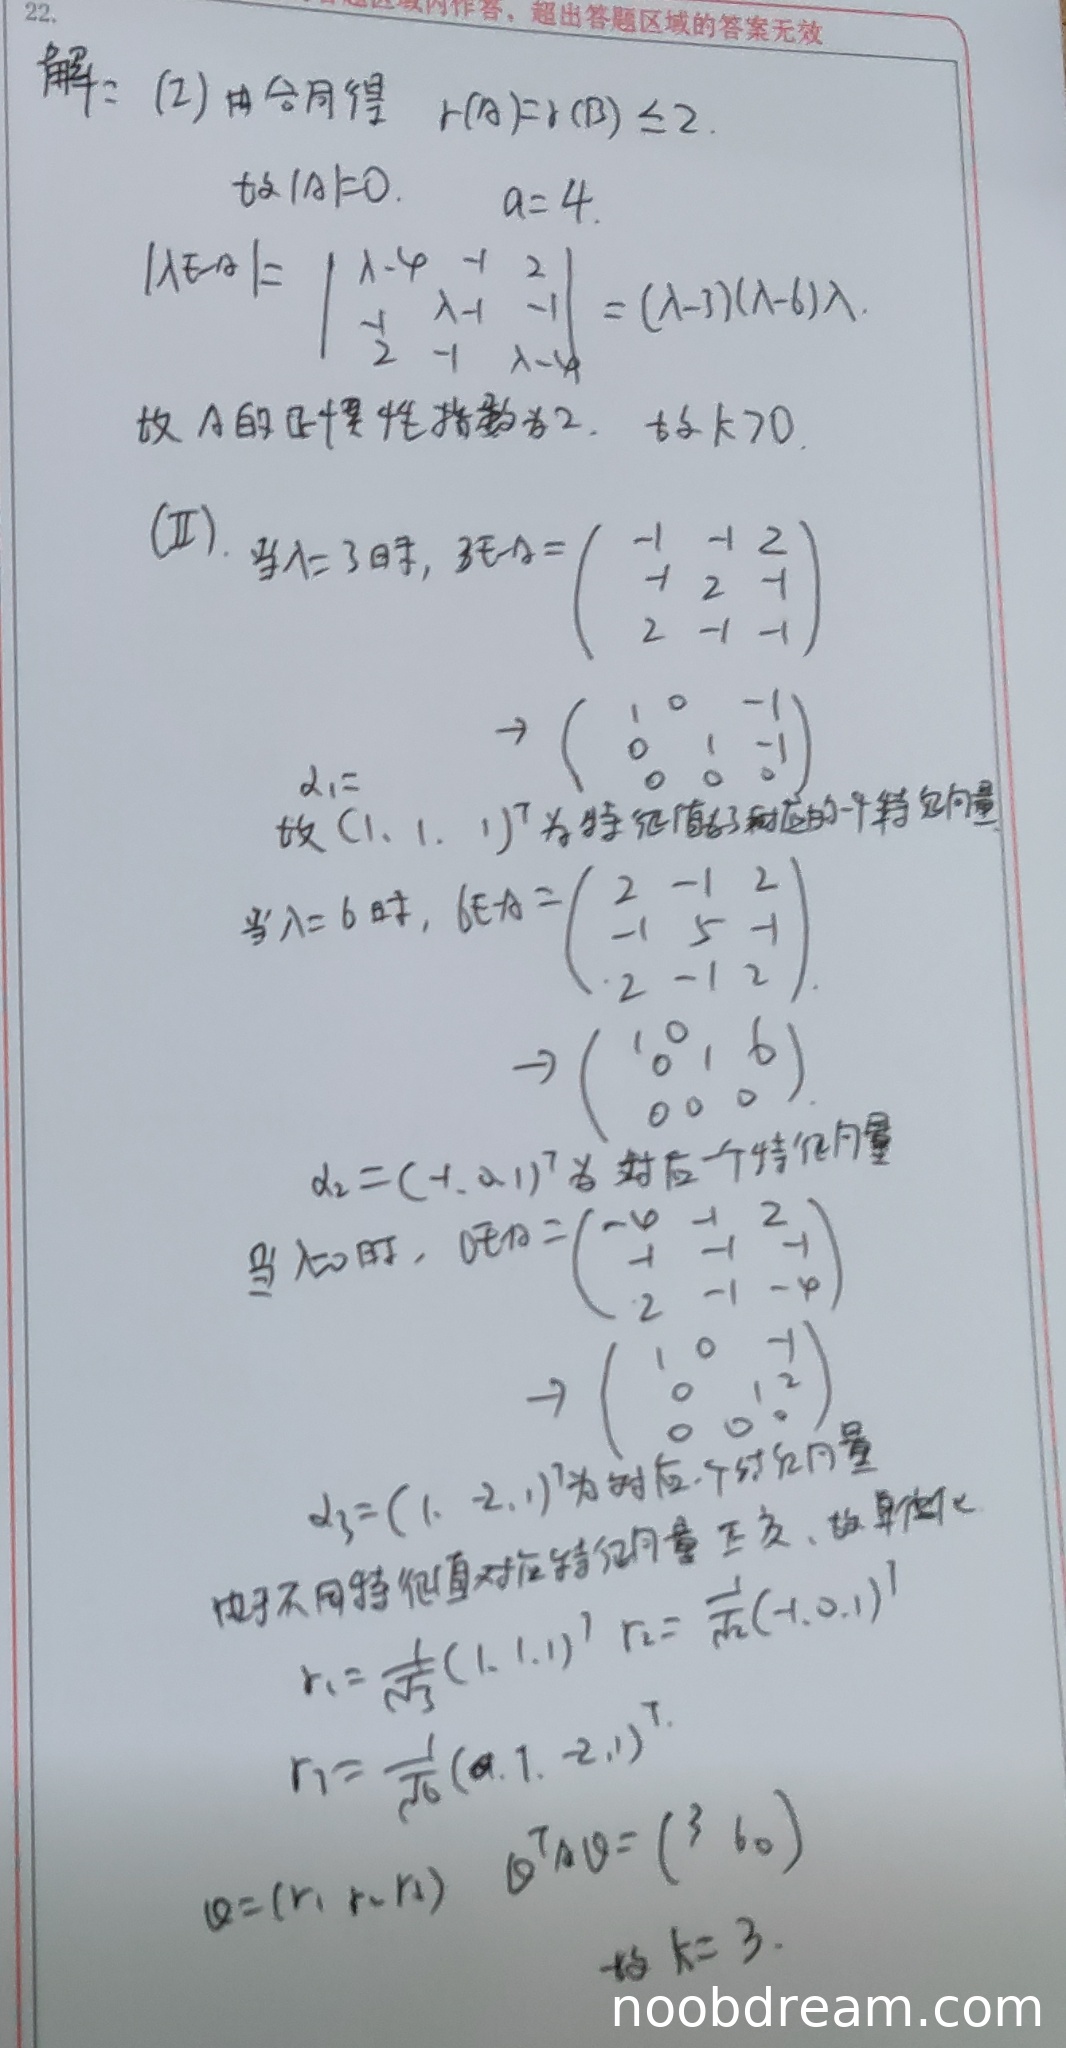 22.
答题区域内作答，超出答题区域的答案无效
解: (2) 由合同得 r(A)=r(B)≤2.
故|A|=0. a=4.
|λE-A|= | λ-4 -1 2
-1 λ-1 -1
2 -1 λ-4 | =(λ-3)(λ-6)λ.
故A的正惯性指数为2. 故k>0.
(Ⅱ). 当λ=3时, 3E-A= ( -1 -1 2
-1 2 -1
2 -1 -1 )
→ ( 1 0 -1
0 1 -1
0 0 0 )
α₁=
故(1. 1. 1)ᵀ为特征值为3对应的一个特征向量
当λ=6时, 6E-A= ( 2 -1 2
-1 5 -1
2 -1 2 ).
→ ( 1 0
0 1 6
0 0 0 ).
α₂=(-1. 0. 1)ᵀ为对应一个特征向量
当λ=0时, 0E-A= ( -4 -1 2
-1 -1 -1
2 -1 -4 )
→ ( 1 0 -1
0 1 2
0 0 0 )
α₃=(1. -2. 1)ᵀ为对应个特征向量
由于不同特征值对应特征向量正交、故单位化
r₁= 1/√3 (1. 1. 1)ᵀ r₂= 1/√2 (-1. 0. 1)ᵀ
r₃= 1/√6 (1. -2. 1)ᵀ.
Q=(r₁ r₂ r₃) QᵀAQ= (3 6 0)
故 k=3.
noobdream.com